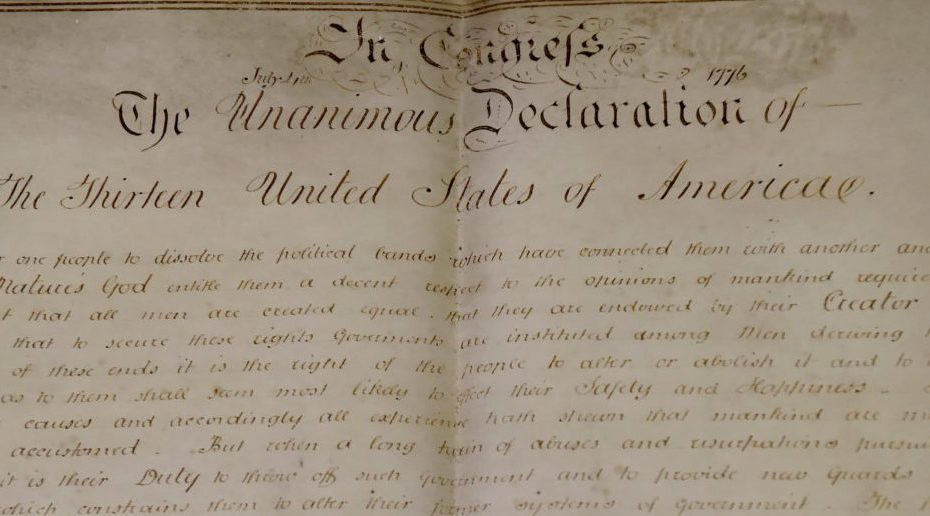 In Congress
July 4th 1776
The Unanimous Declaration of
The Thirteen United States of America.
r one people to dissolve the political bands which have connected them with another and
Nature's God entitle them a decent respect to the opinions of mankind require
t that all men are created equal. that they are endowed by their Creator
that to secure these rights Goverments are instituted among Men deriving
of these ends it is the right of the people to alter or abolish it and to
as to them shall seem most likely to effect their Safety and Happiness -
causes and accordingly all experience hath shewn that mankind are m
accustomed. But when a long train of abuses and usurpations pursu
it is their Duty to throw off such Government and to provide new Guards
which constrains them to alter their former systems of Government. The